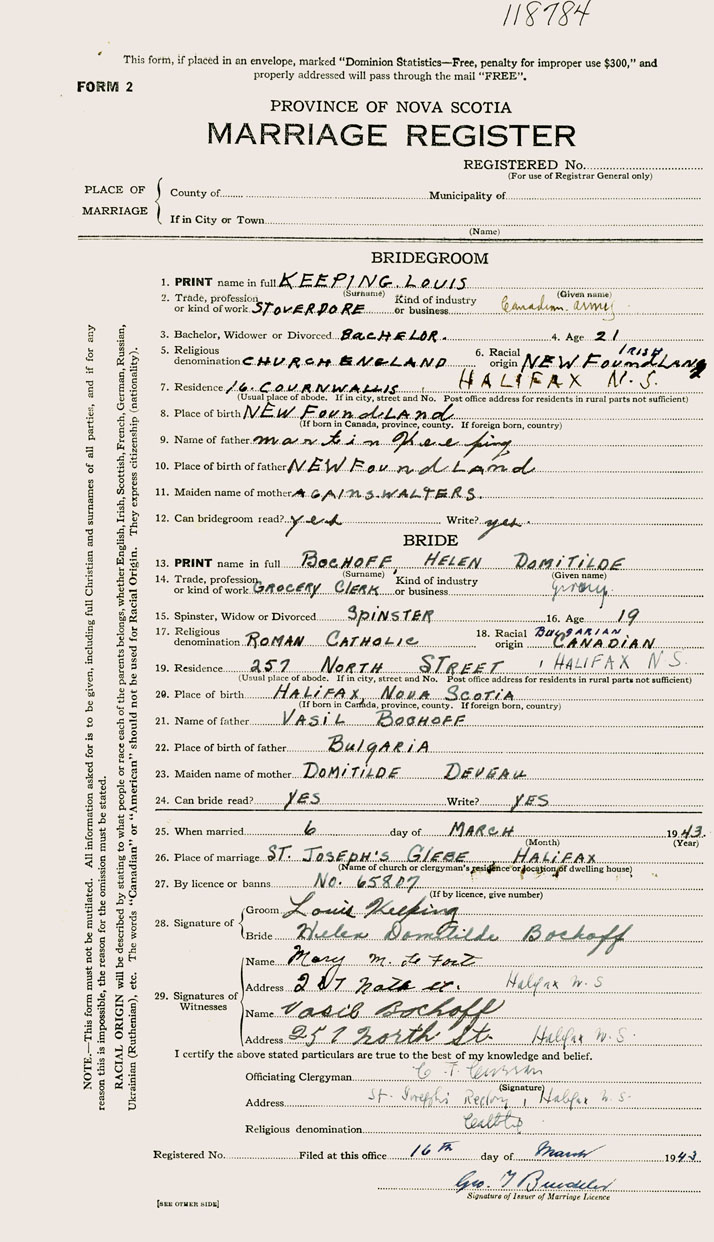 118784
This form, if placed in an envelope, marked "Dominion Statistics—Free, penalty for improper use $300," and
properly addressed will pass through the mail "FREE".
FORM 2
PROVINCE OF NOVA SCOTIA
MARRIAGE REGISTER
REGISTERED No.
(For use of Registrar General only)
PLACE OF MARRIAGE
County of Municipality of
If in City or Town
(Name)
BRIDEGROOM
1. PRINT name in full KEEPING LOUIS
(Surname) (Given name)
2. Trade, profession or kind of work STOVERDORE Kind of industry or business Canadian army
3. Bachelor, Widower or Divorced BACHELOR. 4. Age 21
5. Religious denomination CHURCH ENGLAND 6. Racial origin IRISH NEW FoundLAND
7. Residence 16. COURNWALLIS, HALIFAX N.S.
(Usual place of abode. If in city, street and No. Post office address for residents in rural parts not sufficient)
8. Place of birth NEW FoundLand
(If born in Canada, province, county. If foreign born, country)
9. Name of father martin Keeping
10. Place of birth of father NEWFoundLand
11. Maiden name of mother AGAINS.WALTERS.
12. Can bridegroom read? yes Write? yes.
BRIDE
13. PRINT name in full BOCHOFF, HELEN DOMITILDE
(Surname) (Given name)
14. Trade, profession or kind of work GROCERY CLERK Kind of industry or business
15. Spinster, Widow or Divorced SPINSTER 16. Age 19
17. Religious denomination ROMAN CATHOLIC 18. Racial origin BULGARIAN CANADIAN
19. Residence 257 NORTH STREET, HALIFAX N S.
(Usual place of abode. If in city, street and No. Post office address for residents in rural parts not sufficient)
20. Place of birth HALIFAX, NOVA SCOTIA
(If born in Canada, province, county. If foreign born, country)
21. Name of father VASIL BOCHOFF
22. Place of birth of father BULGARIA
23. Maiden name of mother DOMITILDE DEVEAU
24. Can bride read? YES Write? YES
25. When married 6 day of MARCH 1943.
(Month) (Year)
26. Place of marriage ST. JOSEPH'S GLEBE HALIFAX
(Name of church or clergyman's residence or location of dwelling house)
27. By licence or banns No. 65807
(If by licence, give number)
28. Signature of
Groom Louis Keeping
Bride Helen Domitilde Bochoff
29. Signatures of Witnesses
Name Mary M.
Address Halifax N.S
Name Vasil Bochoff
Address 257 North St. Halifax N.S.
I certify the above stated particulars are true to the best of my knowledge and belief.
Officiating Clergyman
(Signature)
Address St. Joseph's Rectory, Halifax N.S.
Religious denomination
Registered No. Filed at this office 16th day of March 1943
Geo. T
Signature of Issuer of Marriage Licence
[SEE OTHER SIDE]
NOTE.—This form must not be mutilated. All information asked for is to be given, including full Christian and surnames of all parties, and if for any
reason this is impossible, the reason for the omission must be stated.
RACIAL ORIGIN will be described by stating to what people or race each of the parents belongs, whether English, Irish, Scottish, French, German, Russian,
Ukrainian (Ruthenian), etc. The words "Canadian" or "American" should not be used for Racial Origin. They express citizenship (nationality).